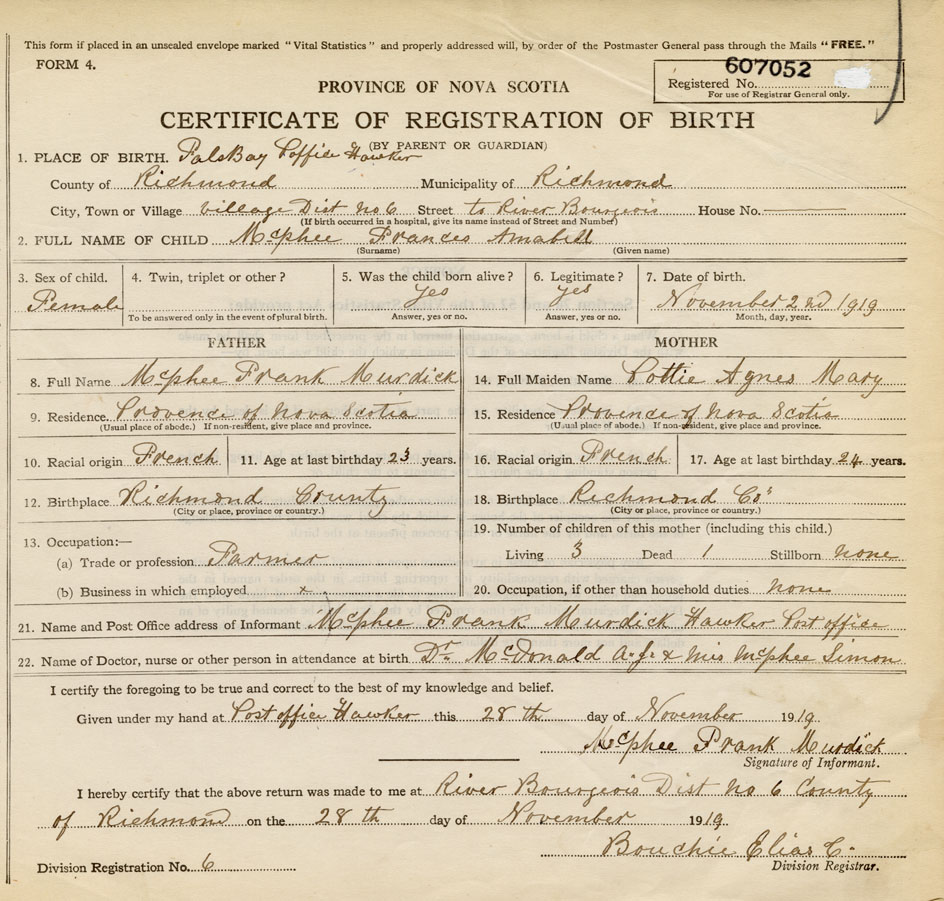 This form if placed in an unsealed envelope marked "Vital Statistics" and properly addressed will, by order of the Postmaster General pass through the Mails "FREE."
FORM 4.
607052
Registered No.
For use of Registrar General only.
PROVINCE OF NOVA SCOTIA
CERTIFICATE OF REGISTRATION OF BIRTH
(BY PARENT OR GUARDIAN)
1. PLACE OF BIRTH. FalsBay Poffice Hawker
County of Richmond Municipality of Richmond
City, Town or Village village Dist no 6 Street to River Bourgeois House No.
(If birth occurred in a hospital, give its name instead of Street and Number)
2. FULL NAME OF CHILD McPhee Frances Amabill
(Surname) (Given name)
3. Sex of child. 4. Twin, triplet or other? 5. Was the child born alive? 6. Legitimate? 7. Date of birth.
Female yes yes November 2nd 1919
To be answered only in the event of plural birth. Answer, yes or no. Answer, yes or no. Month, day, year.
FATHER MOTHER
8. Full Name McPhee Frank Murdick 14. Full Maiden Name Pottie Agnes Mary
9. Residence Provence of Nova Scotia 15. Residence Provence of Nova Scotia
(Usual place of abode.) If non-resident, give place and province. (Usual place of abode.) If non-resident, give place and province.
10. Racial origin French 11. Age at last birthday 23 years. 16. Racial origin French 17. Age at last birthday 24 years.
12. Birthplace Richmond County 18. Birthplace Richmond Co
(City or place, province or country.) (City or place, province or country.)
13. Occupation:— 19. Number of children of this mother (including this child.)
(a) Trade or profession Farmer Living 3 Dead 1 Stillborn none
(b) Business in which employed x 20. Occupation, if other than household duties none
21. Name and Post Office address of Informant McPhee Frank Murdick Hawker Post office
22. Name of Doctor, nurse or other person in attendance at birth Dr. McDonald A. J. & Mis McPhee Simon
I certify the foregoing to be true and correct to the best of my knowledge and belief.
Given under my hand at Post office Hawker this 28 th day of November 1919
McPhee Frank Murdick
Signature of Informant.
I hereby certify that the above return was made to me at River Bourgeois Dist no 6 County
of Richmond on the 28 th day of November 1919
Bouchie Elias C.
Division Registration No. 6 Division Registrar.